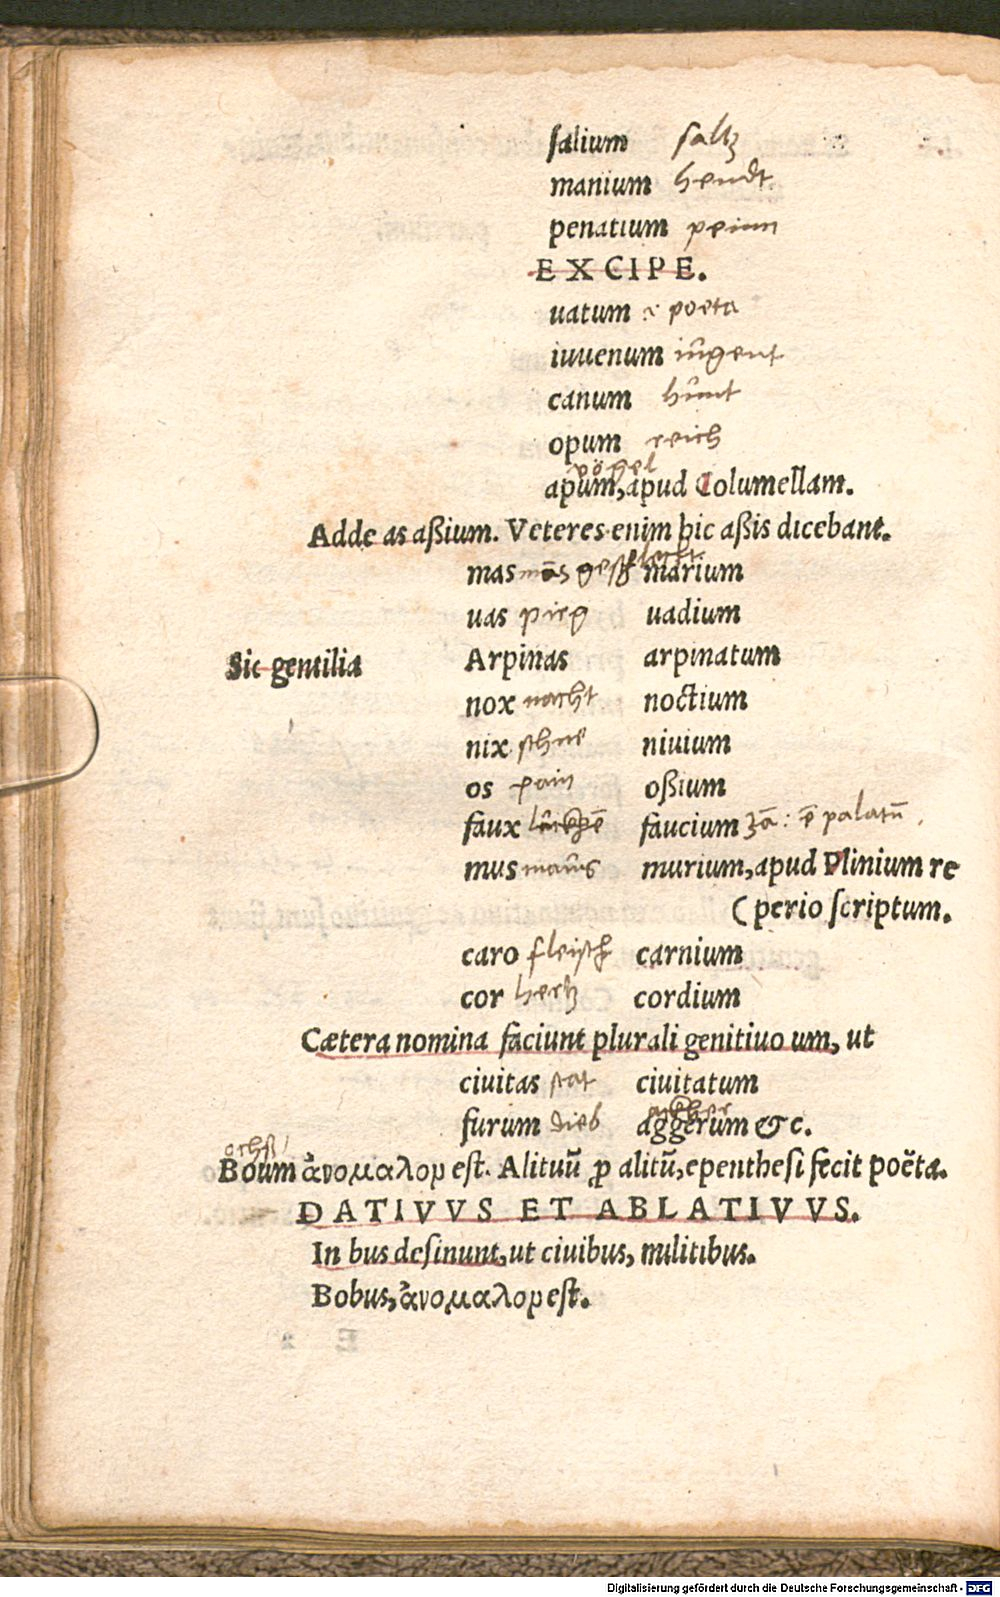 salium saltz
manium hendt
penatium
EXCIPE.
uatum poeta
iuuenum iûgent
canum hûnt
opum reich
vögel
apum, apud Columellam.
Adde as aßium. Veteres enim hic aßis dicebant.
mas marium
uas pirg uadium
Sic gentilia Arpinas arpinatum
nox nacht noctium
nix schne niuium
os pain oßium
faux faucium palatū
mus maûs murium, apud Plinium re
(perio scriptum.
caro fleisch carnium
cor hertz cordium
Cætera nomina faciunt plurali genitiuo um, ut
ciuitas stat ciuitatum
furum dieb aggerum &c.
ochsz
Boum ἀνομαλοp est. Alituū ꝓ alitū, epenthesi fecit poëta.
DATIVVS ET ABLATIVVS.
In bus desinunt, ut ciuibus, militibus.
Bobus, ἀνομαλοp est.
Digitalisierung gefördert durch die Deutsche Forschungsgemeinschaft - DFG